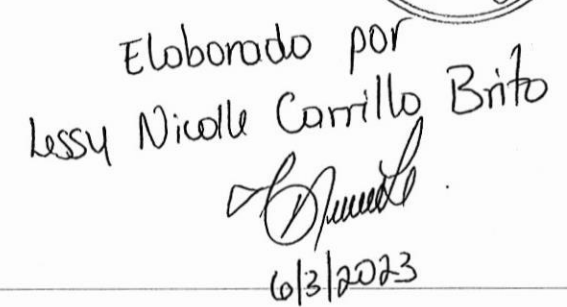 Elaborado por
Lessy Nicolle Carrillo Brito
6/3/2023